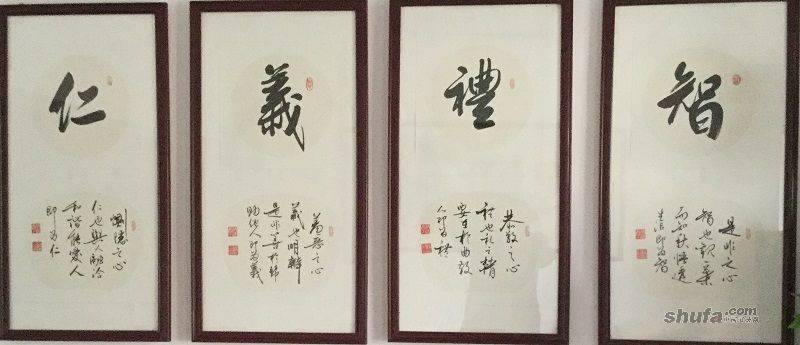 仁
惻隱之心
仁也與人融洽
和諧能愛人
即為仁
義
羞惡之心
義也明辨
是非善於幫
助他人即為義
禮
恭敬之心
礼也礼之精
要在於曲
人即為禮
智
是非之心
智也觀一葉
而知秋悟道
生活即為智
shufa.com